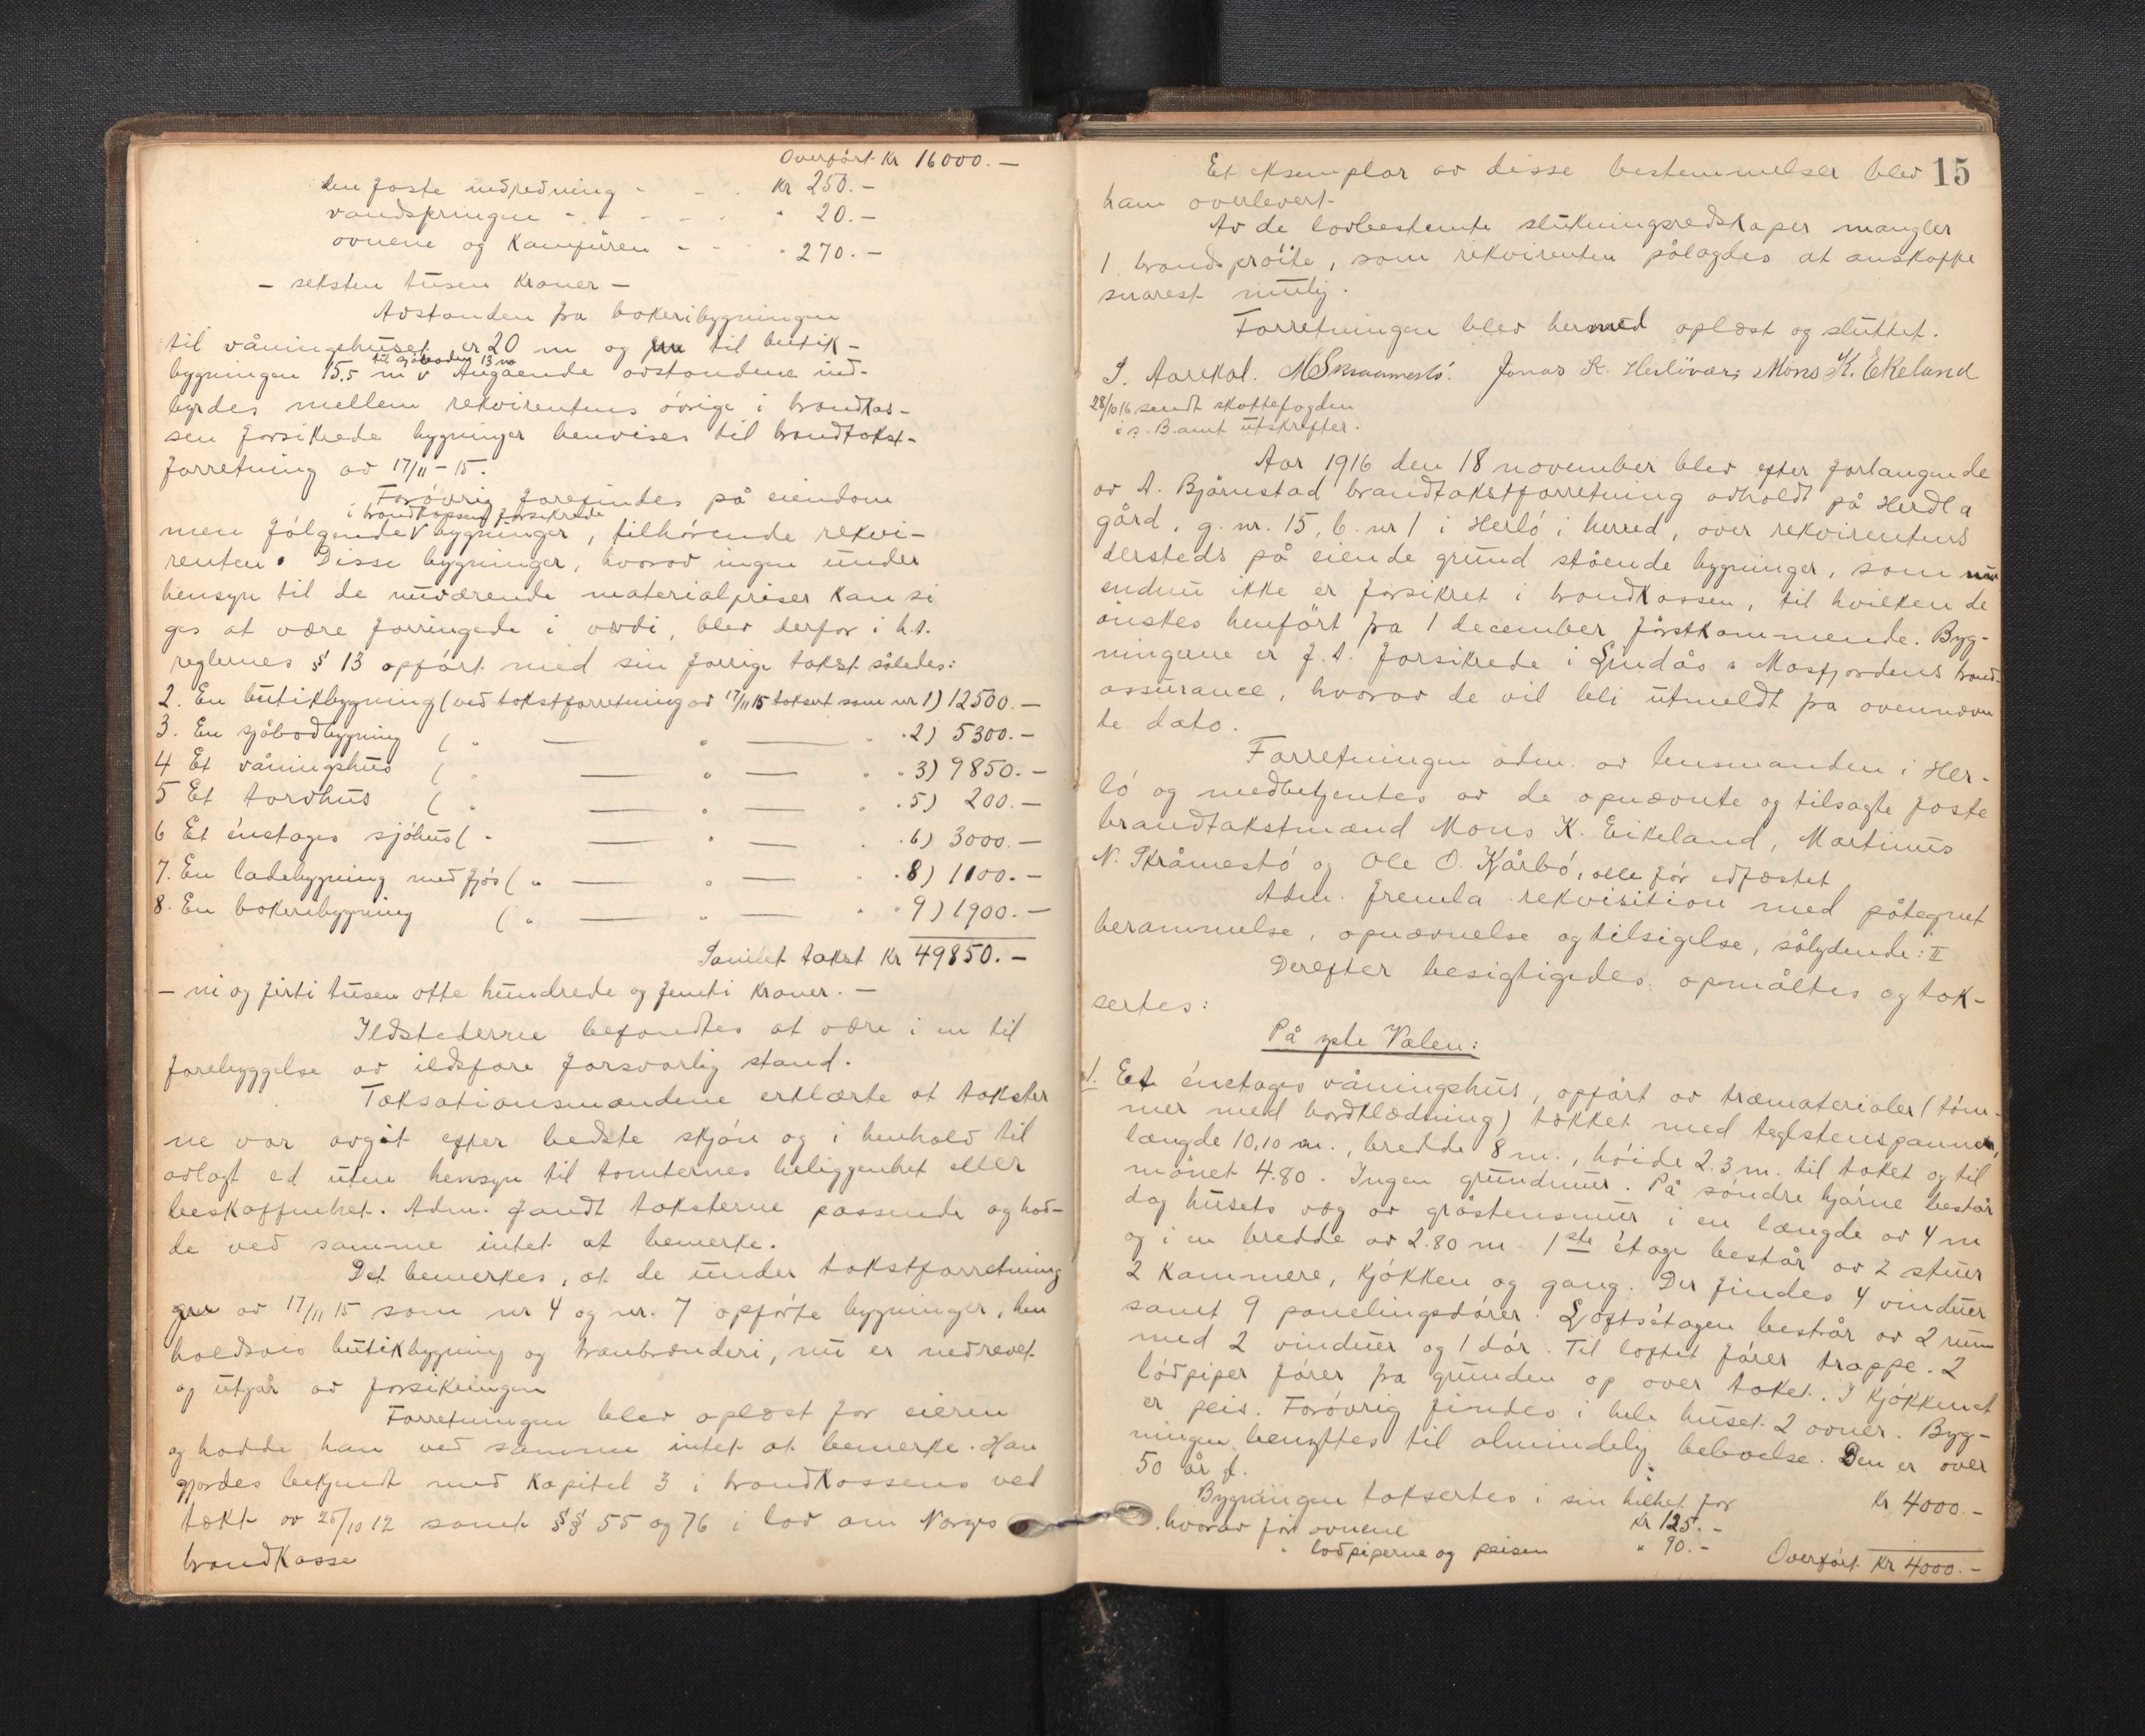 Overført Kr 16000.-
den faste indredning - - . Kr 250.-
vandspringen - . - - - " 20.-
ovnene og Kamfüren - - . " 270.-
- seksten tusen Kroner -
Avstanden fra bakeribygningen
til våningshuset er 20 m og til butik-
til sjöboden 13 m
bygningen 15,5 m v Angående avstandene ind-
byrdes mellem rekvirentens övrige i brandkas-
sen forsikrede bygninger henvises til brandtakst-
forretning av 17/11-15.
Forövrig forefindes på eiendom
i brandkassen forsikrede
men fölgende v bygninger, tilhörende rekvi-
renten. Disse bygninger, hvorav ingen under
hensyn til de nuværende materialpriser kan si
ges at være forringede i værdi, blev derfor i h.t.
reglernes § 13 opfört med sin forrige takst således:
2. En butikbygning (ved takstforretning av 17/11 15 taksert som nr 1) 12500.-
3. En sjöbodbygning ( " — " — " " 2) 5300.-
4 Et våningshus ( " — " — " " 3) 9850.-
5 Et torvhus ( " — " — " " 5) 200.-
6 Et énetages sjöhus ( " — " — " " 6) 3000.-
7. En ladebygning med fjös ( " — " — " " 8) 1100.-
8. En bakeribygning ( " — " — " " 9) 1900.-
Samlet takst Kr 49850.-
- ni og firti tusen otte hundrede og femti Kroner. -
Ildstederne befandtes at være i en til
forebyggelse av ildsfare forsvarlig stand.
Taksationsmændene erklærte at takster
ne var avgit efter bedste skjön og i henhold til
avlagt ed uten hensyn til tomternes beliggenhet eller
beskaffenhet. Adm. fandt taksterne passende og had-
de ved samme intet at bemerke.
Det bemerkes, at de under takstforretning
gen av 17/11 15 som nr 4 og nr. 7 opförte bygninger, hen
holdsvis butikbygning og tranbrænderi, nu er nedrevet
og utgår av forsikringen
Forretningen blev oplæst for eieren
og hadde han ved samme intet at bemerke. Han
gjordes bekjendt med Kapitel 3 i brandkassens ved
tækt av 25/10 12 samt §§ 55 og 76 i lov om Norges
brandkasse
15
Et eksemplar av disse bestemmelser blev
ham overlevert.
Av de lovbestemte slukningsredskaper mangler
1 brandspröite, som rekvirenten pålagdes at anskaffe
snarest mulig.
Forretningen blev hermed oplæst og sluttet.
S. Aarekol. M Skraamestö. Jonas K. Herlövær; Mons K. Ekeland
28/10 16 sendt skattefogden
i s. B.amt utskrifter.
Aar 1916 den 18 november blev efter forlangende
av A. Bjørnestad brandtakstforretning avholdt på Herdla
gård, g. nr. 15, b. nr 1 i Herlö i herred, over rekvirentens
dersteds på eiende grund stående bygninger, som
endnu ikke er forsikret i brandkassen, til hvilken de
önskes henfört fra 1 december förstkommende. Byg-
ningerne er f.t. forsikrede i Lindås & Masfjordens brand-
assurance, hvorav de vil bli utmeldt fra ovennævn
te dato.
Forretningen adm. av lensmanden i Her-
lö og medbetjentes av de opnævnte og tilsagte faste
brandtakstmænd Mons K. Eikeland, Martinus
N. Skråmestö og Ole O. Kårbö, alle för edfæstet
Adm. fremla rekvisition med påtegnet
berammelse, opnævnelse og tilsigelse, sålydende: II
Derefter besigtigedes, opmåltes og tak-
sertes:
På yste Valen:
1. Et énetages våningshus, opfört av træmaterialer (töm-
mer med bordklædning) tækket med teglstenspanner,
længde 10,10 m., bredde 8 m., höide 2.3 m. til taket og til
mönet 4.80. Ingen grundmur. På söndre hjörne består
dog husets væg av gråstensmur i en længde av 4 m
og i en bredde av 2.80 m. 1ste étage består av 2 stuer
2 Kammere, Kjökken og gang. Der findes 4 vinduer
samt 9 panelingsdörer. Loftsétagen består av 2 rum
med 2 vinduer og 1 dör. Til loftet förer trappe. 2
lödpiper förer fra grunden op over taket. I Kjökkenet
er peis. Forövrig findes i hele huset 2 ovner. Byg-
ningen benyttes til almindelig beboelse. Den er over
50 år gl.
Bygningen taksertes i sin helhet for Kr 4000.-
hvorav for ovnene Kr 125.-
" lödpiperne og peisen " 90.-
Overført Kr 4000.-